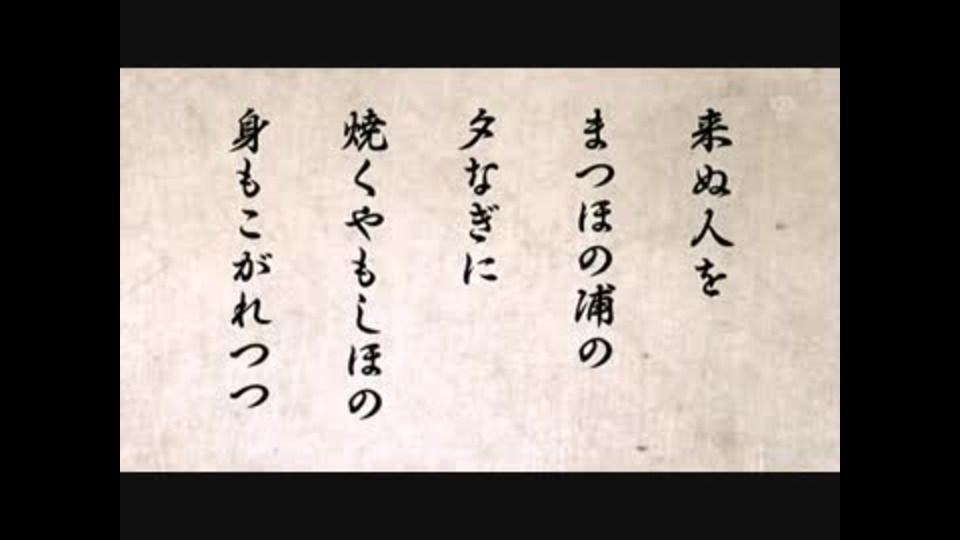 来ぬ人を
まつほの浦の
夕なぎに
焼くやもしほの
身もこがれつつ